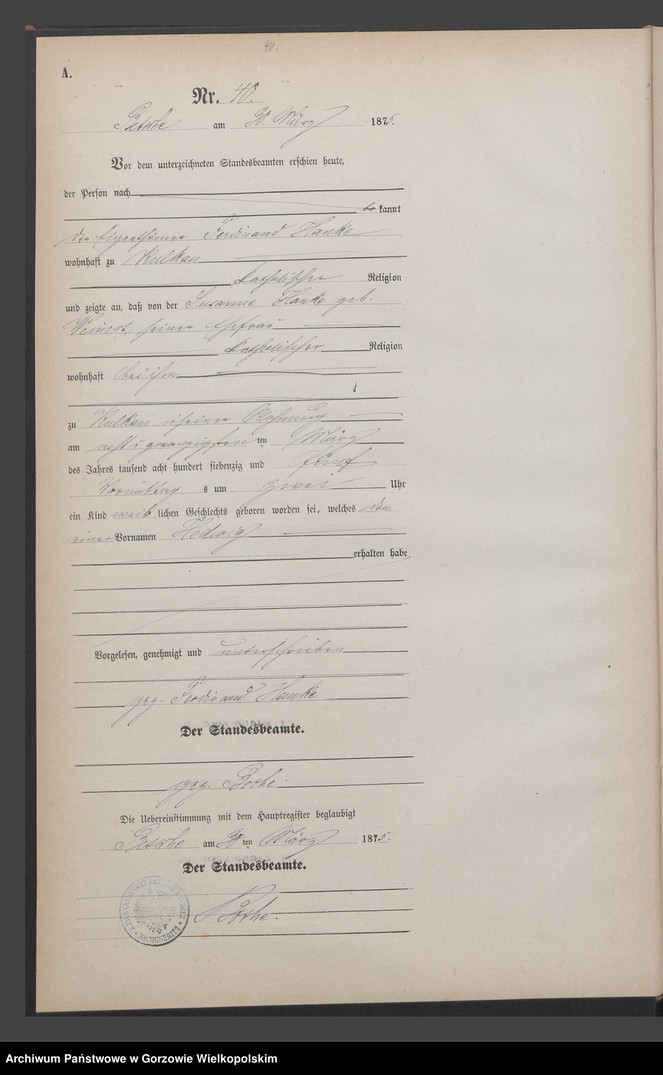 40.
A.
Nr. 40.
am 30. März 1875.
Vor dem unterzeichneten Standesbeamten erschien heute,
der Person nach
kannt
der Eigenthümer Ferdinand Hanke
wohnhaft zu Kulkau
katholischer Religion
und zeigte an, daß von der Susanne Hanke geb.
Weinert seiner Ehefrau
katholischer Religion
wohnhaft bei ihm
zu Kulkau in seiner Wohnung
am acht u zwanzigsten ten März
des Jahres tausend acht hundert siebenzig und fünf
Vormittag s um zwei Uhr
ein Kind weib lichen Geschlechts geboren worden sei, welches den
einen Vornamen Hedwig
erhalten habe
Vorgelesen, genehmigt und unterschrieben
gez. Ferdinand Hanke
Der Standesbeamte.
gez. Bothe.
Die Uebereinstimmung mit dem Hauptregister beglaubigt
am 30 ten März 1875.
Der Standesbeamte.
Bothe.
Archiwum Państwowe w Gorzowie Wielkopolskim